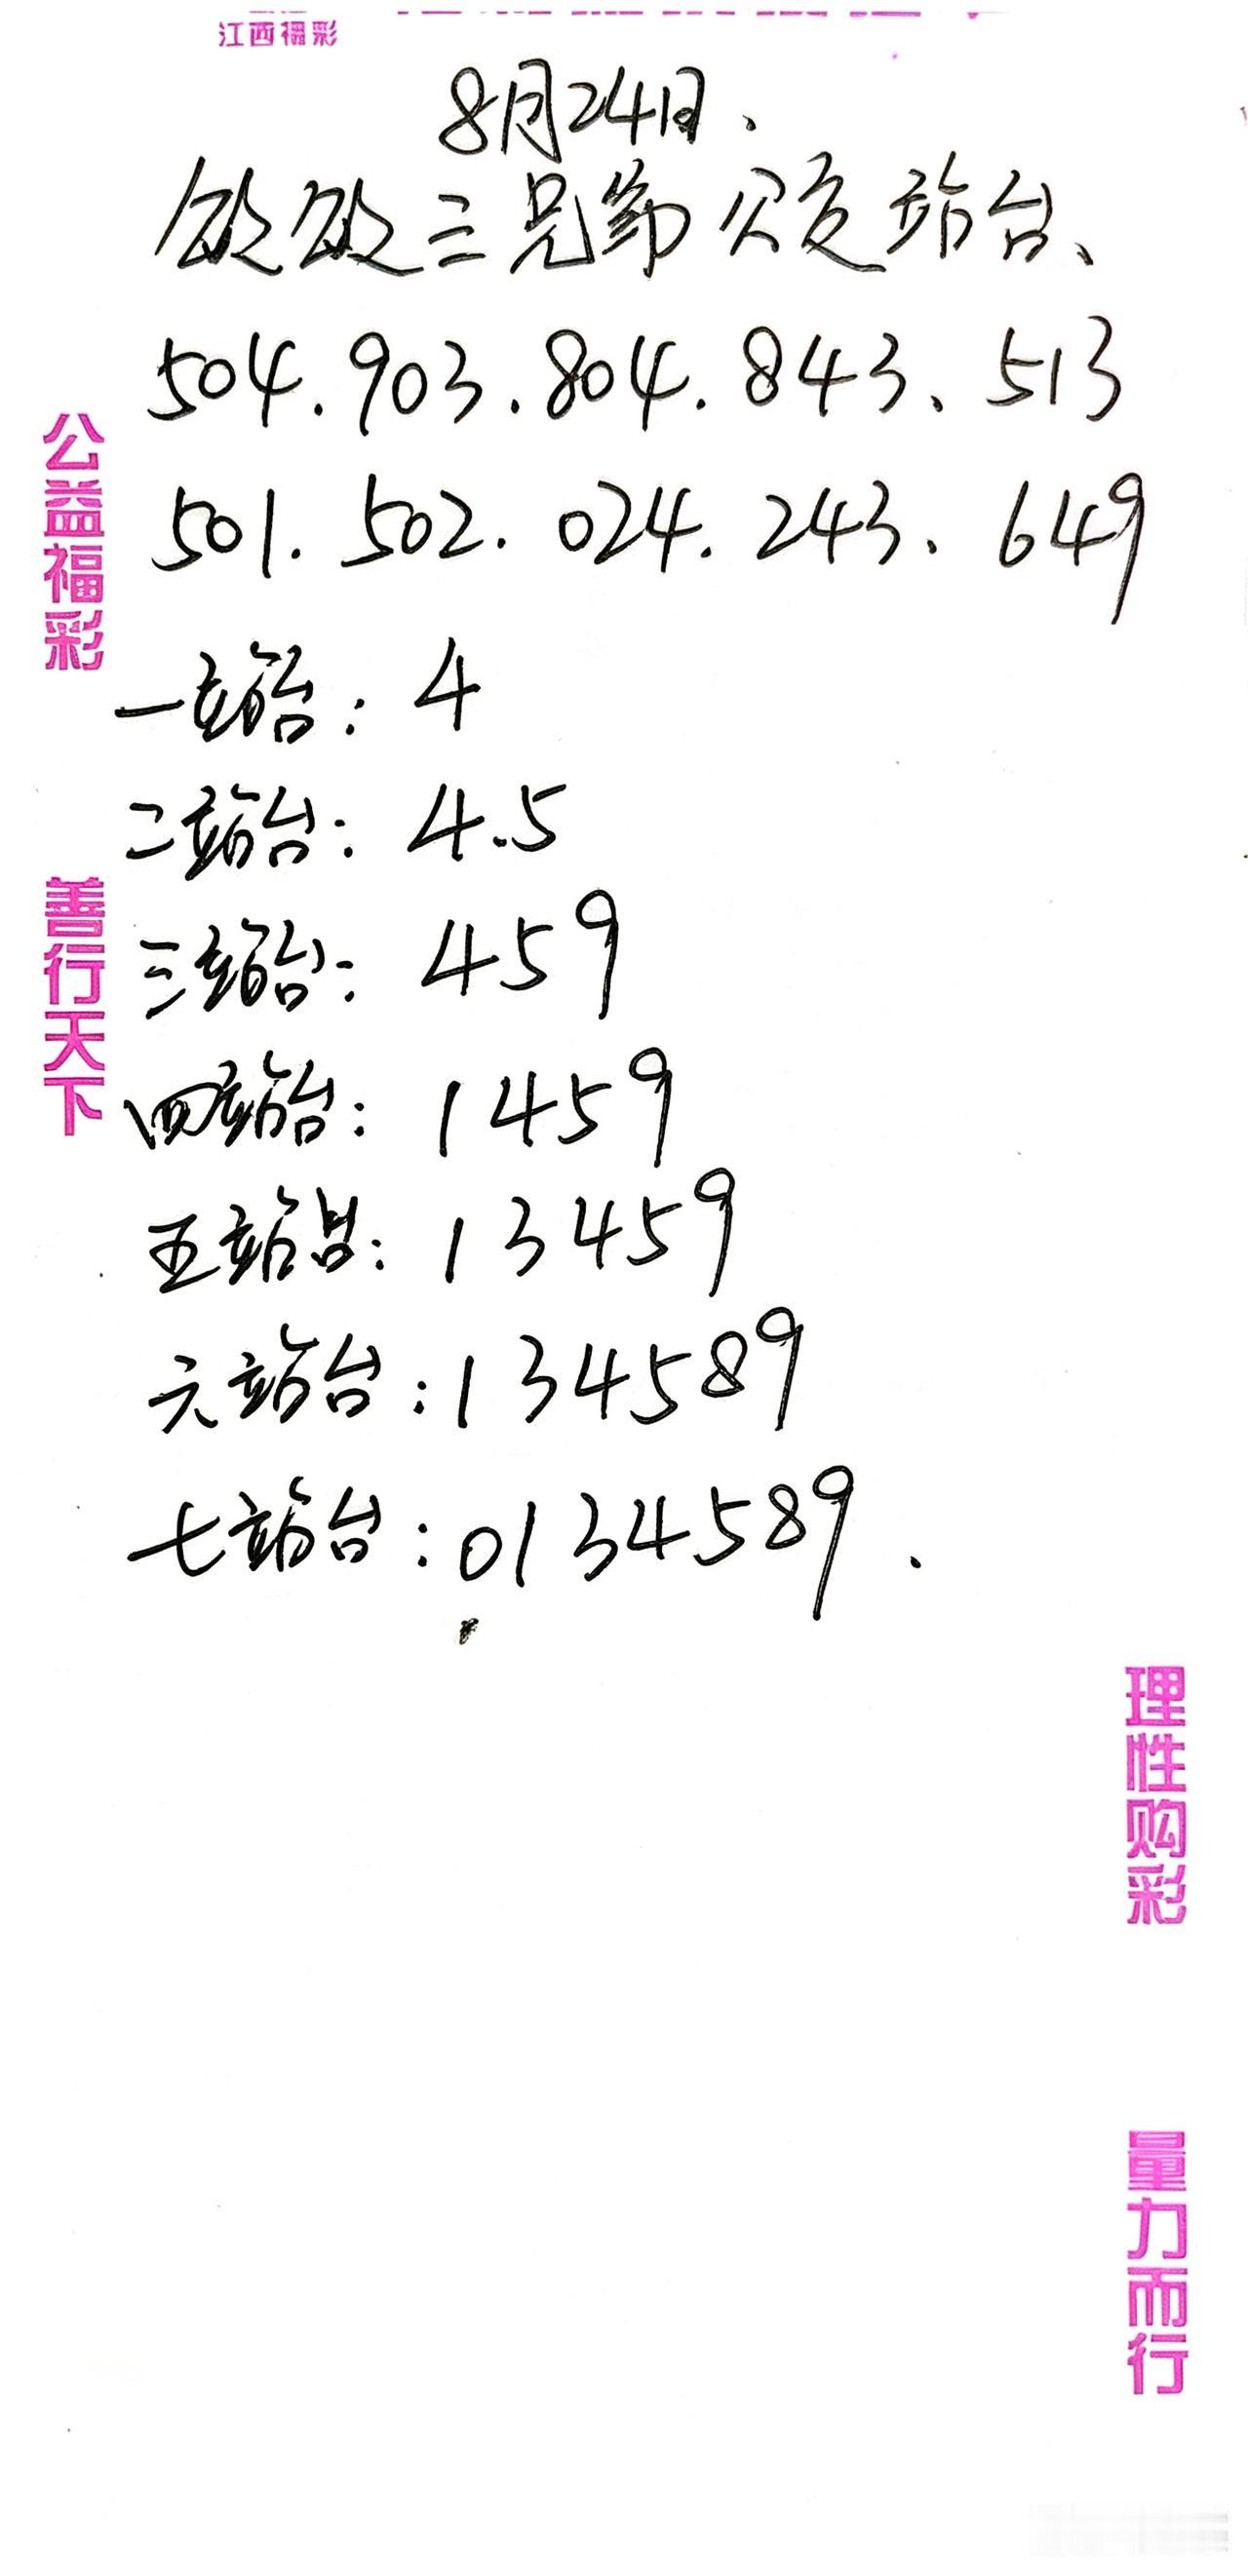 江西福彩
8月24日.
三兄弟 站台、
504.903.804.843、513
501.502.024.243、649
一站台：4
二站台：4.5
三站台：459
四站台：1459
五站台：13459
六站台：134589
七站台：0134589.
公益福彩
善行天下
理性购彩
量力而行